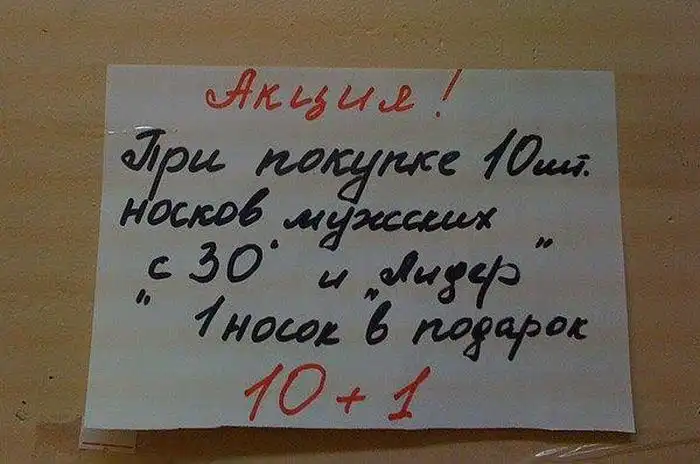 Акция!
При покупке 10шт.
носков мужских
с 30° и „Лидер"
" 1 носок" в подарок
10 + 1